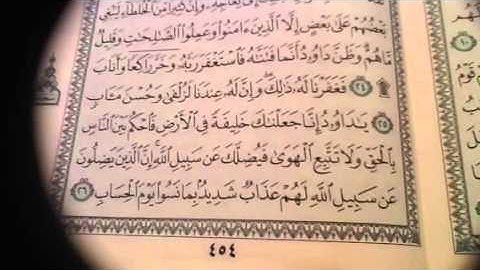 وَإِنَّ كَثِيرًا مِّنَ ٱلْخُلَطَآءِ لَيَبْغِى
بَعْضُهُمْ عَلَىٰ بَعْضٍ إِلَّا ٱلَّذِينَ ءَامَنُوا۟ وَعَمِلُوا۟ ٱلصَّٰلِحَٰتِ وَقَلِيلٌ
مَّا هُمْ وَظَنَّ دَاوُۥدُ أَنَّمَا فَتَنَّٰهُ فَٱسْتَغْفَرَ رَبَّهُۥ وَخَرَّ رَاكِعًا وَأَنَابَ
٢٤ فَغَفَرْنَا لَهُۥ ذَٰلِكَ وَإِنَّ لَهُۥ عِندَنَا لَزُلْفَىٰ وَحُسْنَ مَـَٔابٍ
٢٥ يَٰدَاوُۥدُ إِنَّا جَعَلْنَٰكَ خَلِيفَةً فِى ٱلْأَرْضِ فَٱحْكُم بَيْنَ ٱلنَّاسِ
بِٱلْحَقِّ وَلَا تَتَّبِعِ ٱلْهَوَىٰ فَيُضِلَّكَ عَن سَبِيلِ ٱللَّهِ إِنَّ ٱلَّذِينَ يَضِلُّونَ
عَن سَبِيلِ ٱللَّهِ لَهُمْ عَذَابٌ شَدِيدٌۢ بِمَا نَسُوا۟ يَوْمَ ٱلْحِسَابِ ٢٦
٤٥٤